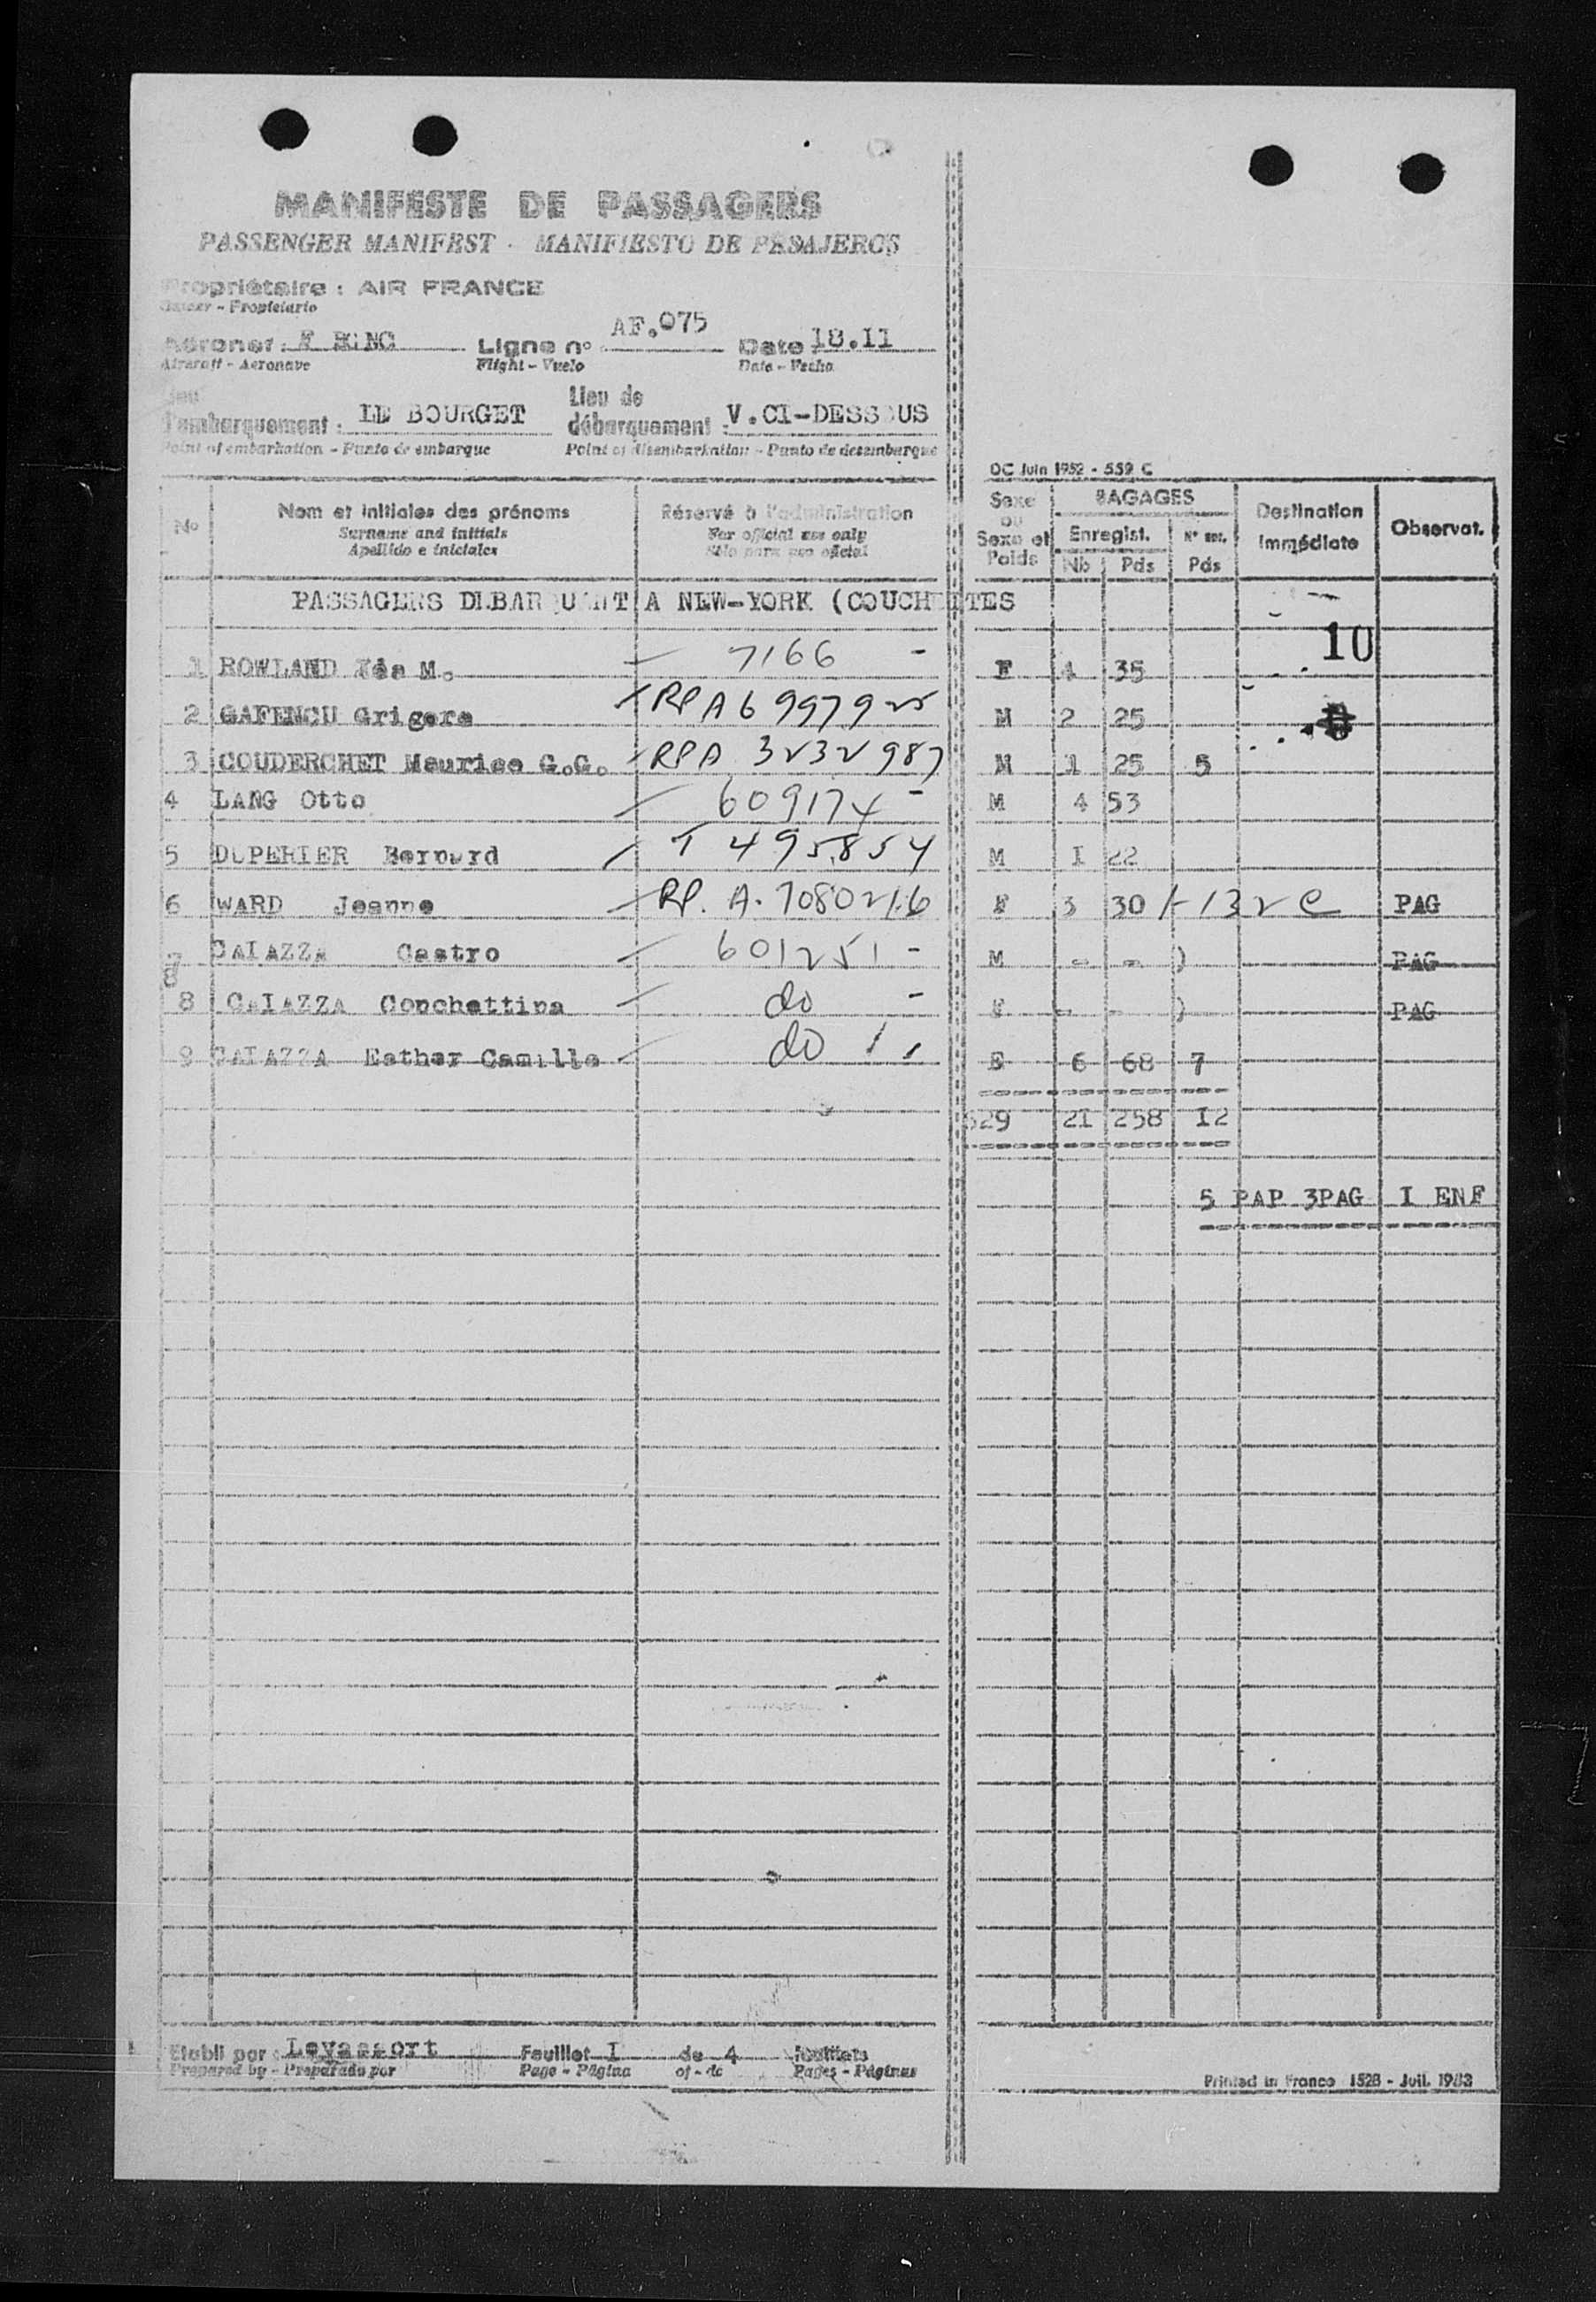 MANIFESTE DE PASSAGERS
PASSENGER MANIFEST - MANIFIESTO DE PASAJEROS
Propriétaire : AIR FRANCE
Owner - Propietario
Aéronef : Ligne n° AF.075 Date 18.11
Aircraft - Aeronave Flight - Vuelo Date - Fecha
Lieu Lieu de
d'embarquement : LE BOURGET débarquement : V.CI-DESSOUS
Point of embarkation - Punto de embarque Point of disembarkation - Punto de desembarque
OC Juin 1952 - 559 C
N° Nom et initiales des prénoms Réservé à l'administration Sexe ou Sexe et Poids BAGAGES Destination immédiate Observat.
Surname and initials For official use only Enregist. N° enr.
Apellido e iniciales Sólo para uso oficial Nb Pds Pds
PASSAGERS DEBARQUANT A NEW-YORK (COUCHETTES
10
1 ROWLAND Ida M. 7166 - F 4 35
2 GAFENCU Grigore RP A6 99792 M 2 25
3 COUDERCHET Maurice G.G. RPA 3232987 M 1 25 5
4 LANG Otto 609174 - M 4 53
5 DUPERIER Bernard T 495854 M I 22
6 WARD Jeanne RP. A. 7080216 F 3 30 PAG
7 CAIAZZA Castro 601251 - M - - ) PAG
8
8 CAIAZZA Conchettina do - F - - ) PAG
9 CAIAZZA Esther Camille do F 6 68 7
629 21 258 12
5 PAP 3PAG I ENF
Etabli par : Levassort Feuillet I de 4 feuillets
Prepared by - Preparado por Page - Página of - de Pages - Páginas
Printed in France 1528 - Juil. 1953